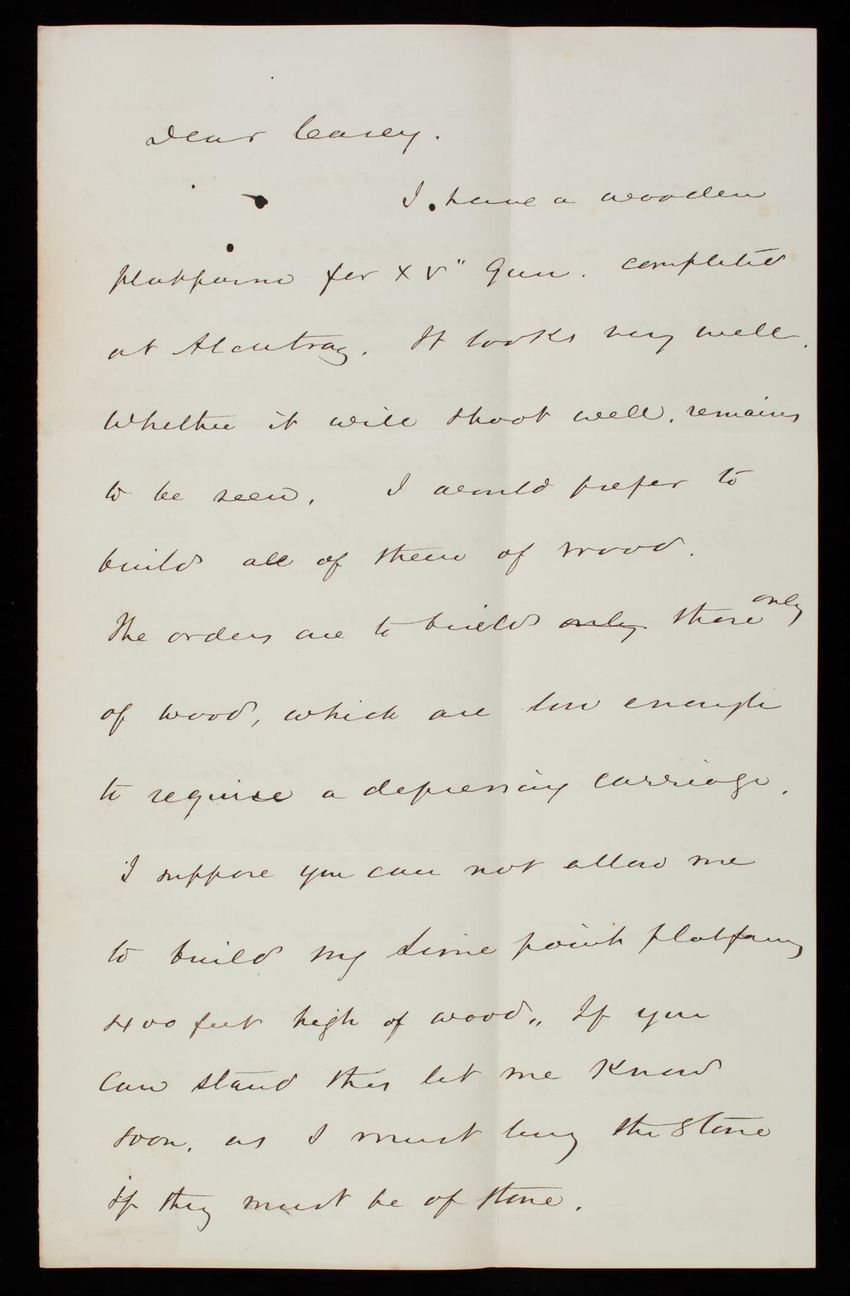 Dear Casey.
I have a wooden
platform for XV" Gun. completed
at Alcatraz. It looks very well.
Whether it will shoot well, remains
to be seen. I would prefer to
build all of them of wood.
The orders are to build only those only
of wood, which are low enough
to require a depressing carriage.
I suppose you can not allow me
to build my Lime point platforms
400 feet high of wood,, If you
can stand this let me know
soon, as I must buy the stone
if they must be of stone.